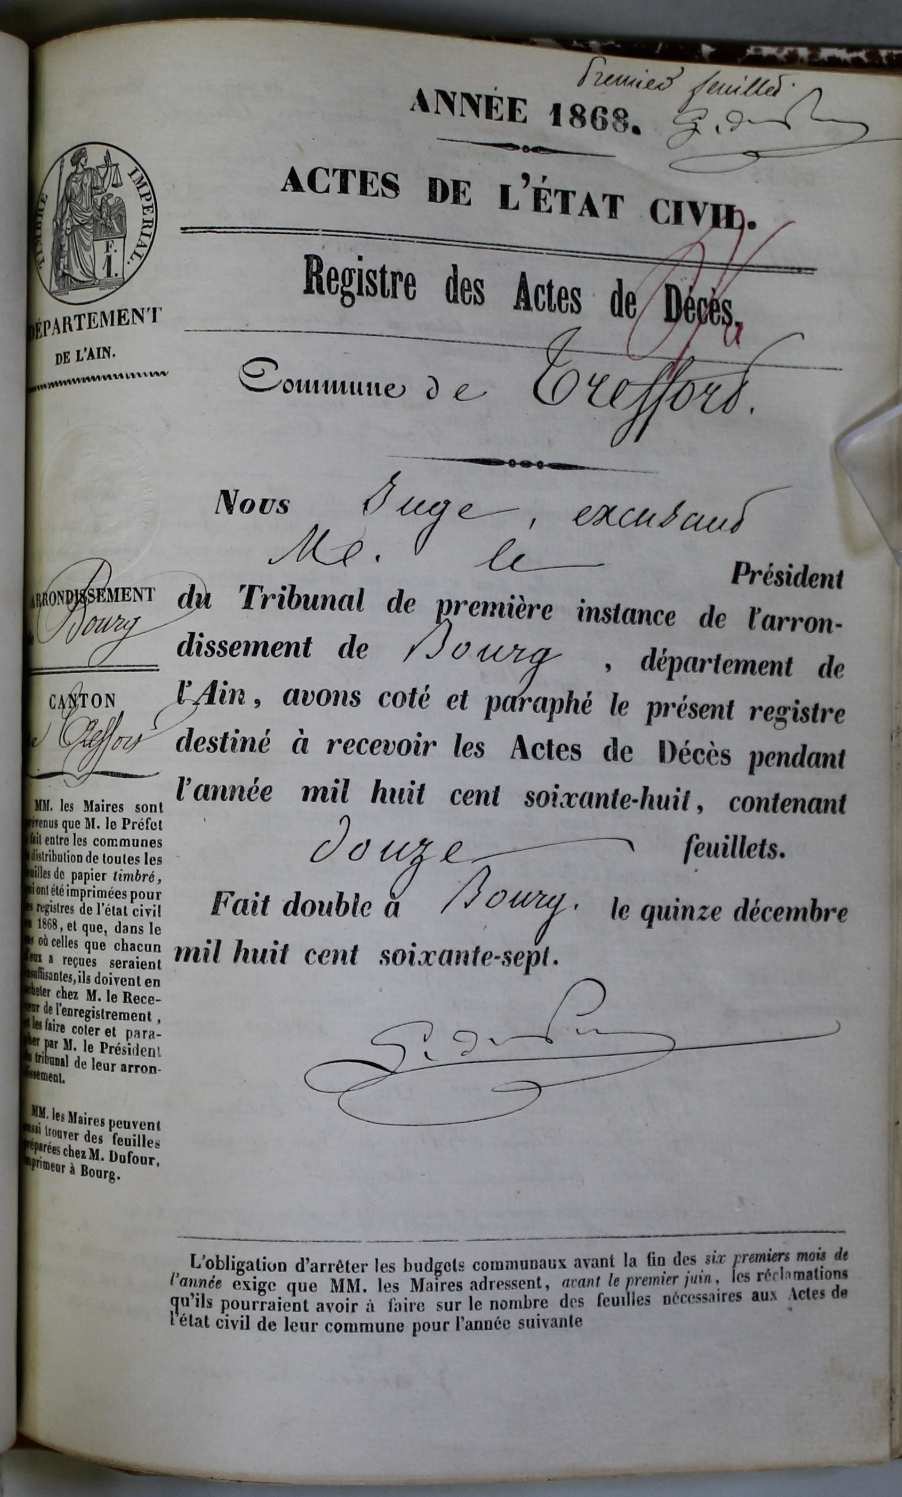 Premier feuillet
ANNÉE 1868.
ACTES DE L'ÉTAT CIVIL.
TIMBRE IMPERIAL.
F.
1.
Registre des Actes de Décès,
DÉPARTEMENT
DE L'AIN.
Commune de Treffort.
Nous Juge, excusant
Me. le Président
ARRONDISSEMENT
Bourg
du Tribunal de première instance de l'arron-
dissement de Bourg, département de
l'Ain, avons coté et paraphé le présent registre
destiné à recevoir les Actes de Décès pendant
l'année mil huit cent soixante-huit, contenant
douze feuillets.
Fait double à Bourg. le quinze décembre
mil huit cent soixante-sept.
CANTON
Treffort
MM. les Maires sont
prévenus que M. le Préfet
fait entre les communes
distribution de toutes les
feuilles de papier timbré,
qui ont été imprimées pour
les registres de l'état civil
1868, et que, dans le
cas où celles que chacun
d'eux a reçues seraient
insuffisantes, ils doivent en
acheter chez M. le Rece-
veur de l'enregistrement,
et les faire coter et para-
pher par M. le Président
du tribunal de leur arron-
dissement.
MM. les Maires peuvent
aussi trouver des feuilles
préparées chez M. Dufour,
imprimeur à Bourg.
L'obligation d'arrêter les budgets communaux avant la fin des six premiers mois de
l'année exige que MM. les Maires adressent, avant le premier juin, les réclamations
qu'ils pourraient avoir à faire sur le nombre des feuilles nécessaires aux Actes de
l'état civil de leur commune pour l'année suivante